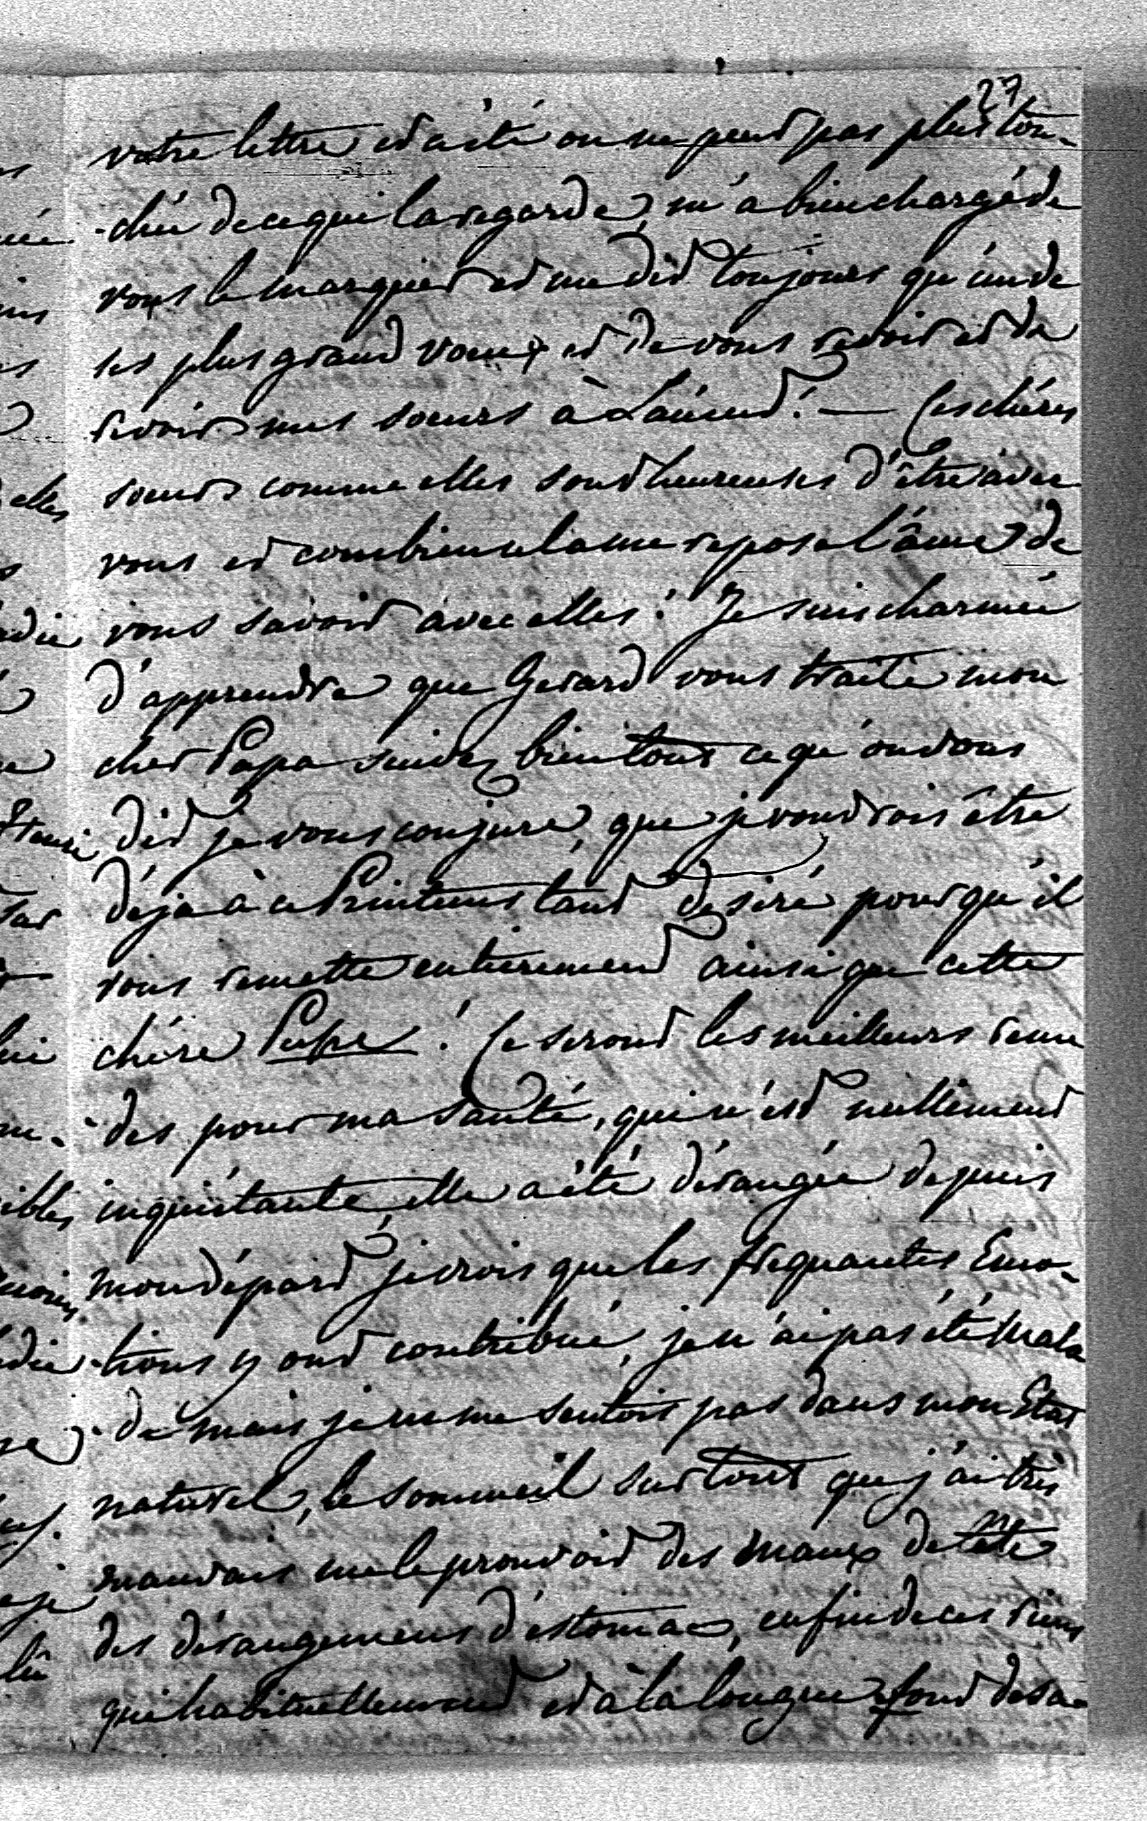 27
votre lettre et a été on ne peut pas plus tou-
-chée de ce qui la regarde, m'a bien chargé de
vous le marquer et me dit toujours qu'un de
ses plus grand voeux est de vous revoir et de
revoir mes soeurs à Laücud! — Ces chéres
soeurs comme elles sont heureuses d'être avec
vous et combien cela me repose l'âme de
vous savoir avec elles! Je suis charmée
d'apprendre que Gerard vous traite mon
cher Papa suivez bien tout ce qu'on vous
dit je vous conjure, que je voudrois être
déja à ce Printems tant desiré pour qu'il
vous remette entierement ainsi que cette
chére Pepe! Ce seront les meilleurs reme
des pour ma santé, qui n'est nullement
inquiétante elle a été dérangée depuis
mon départ, je crois que les frequantes Emo-
-tions y ont contribué, je n'ai pas été mala
-de mais je ne me sentois pas dans mon Etat
naturel, le sommeil sur tout que j'ai tres
mauvais me le prouvoit des maux de tête
des dérangemens d'éstomac, enfin de ces riens
qui habituellement et à la longue font desa-